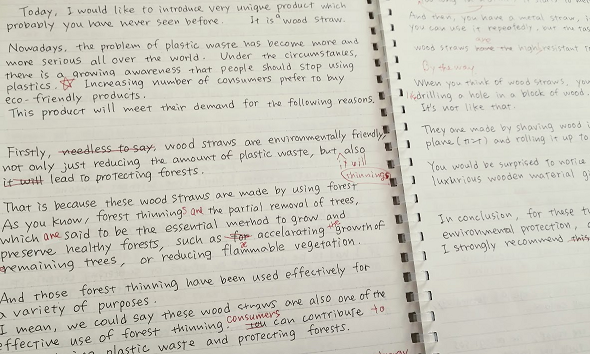 Today, I would like to introduce very unique product which
probably you have never seen before. It is a wood straw.
Nowadays, the problem of plastic waste has become more and
more serious all over the world. Under the circumstances,
there is a growing awareness that people should stop using
plastics. Increasing number of consumers prefer to buy
eco-friendly products.
This product will meet their demand for the following reasons.
Firstly, needless to say, wood straws are environmentally friendly,
not only just reducing the amount of plastic waste, but also
it will lead to protecting forests.
it will
thinnings
That is because these wood straws are made by using forest
As you know, forest thinnings are the partial removal of trees,
which are said to be the essential method to grow and
preserve healthy forests, such as for accelarating the growth of
remaining trees, or reducing flammable vegetation.
And those forest thinning have been used effectively for
a variety of purposes.
I mean, we could say these wood straws are also one of the
effective use of forest thinning. consumers you can contribute to
plastic waste and protecting forests.
And then, you have a metal straw,
you can use it repeatedly, but the
wood straws are the high resistant
By the way
When you think of wood straws, you
drilling a hole in a block of wood.
It's not like that.
They are made by shaving wood
plane (                ) and rolling it up to
You would be surprised to notice
luxurious wooden material
In conclusion, for these
environmental protection,
I strongly recommend this